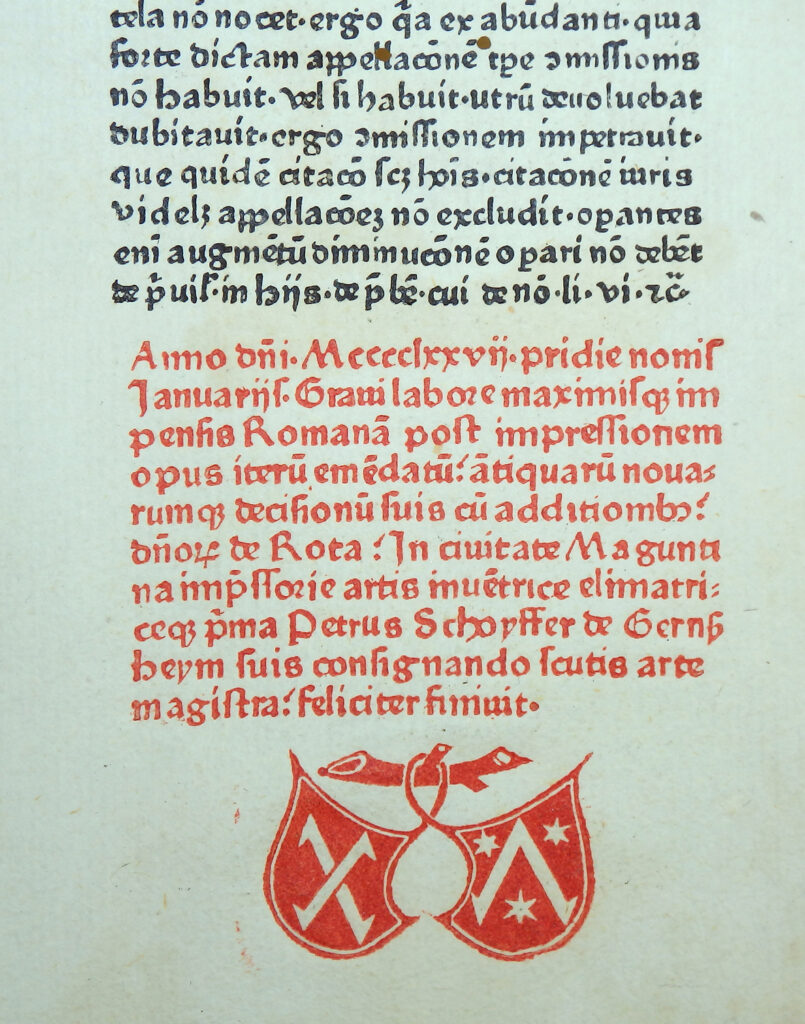 tela nō nocet· ergo q̄a ex abūdanti· quia
forte dictam appellacōnē tp̄e ↄmissionis
nō habuit· vel si habuit· utrū deuoluebat
dubitauit· ergo ↄmissionem impetrauit·
que quidē citacō scꝫ hōis· citacōnē iuris
videlꝫ appellacōeꝫ nō excludit· opantes
enī augmētū diminucōnē opari nō debēt
de p̄uil· in hijs· de p̄bē· cui de nō· li· vi· ⁊c̄·
Anno dn̄i· Mccccclxxvij· pridie nonis
Januarijs· Graui labore maximisqꝫ im
pensis Romanā post impressionem
opus iterū emēdatū: ātiquarū noua⸗
rumqꝫ decisionū suis cū additionibꝰ:
dn̄oꝝ de Rota: In ciuitate Magunti
na imp̄ssorie artis inuētrice elimatri⸗
ceqꝫ p̄ma Petrus Schoyffer de Gernß
heym suis consignando scutis arte
magistra: feliciter finiuit·